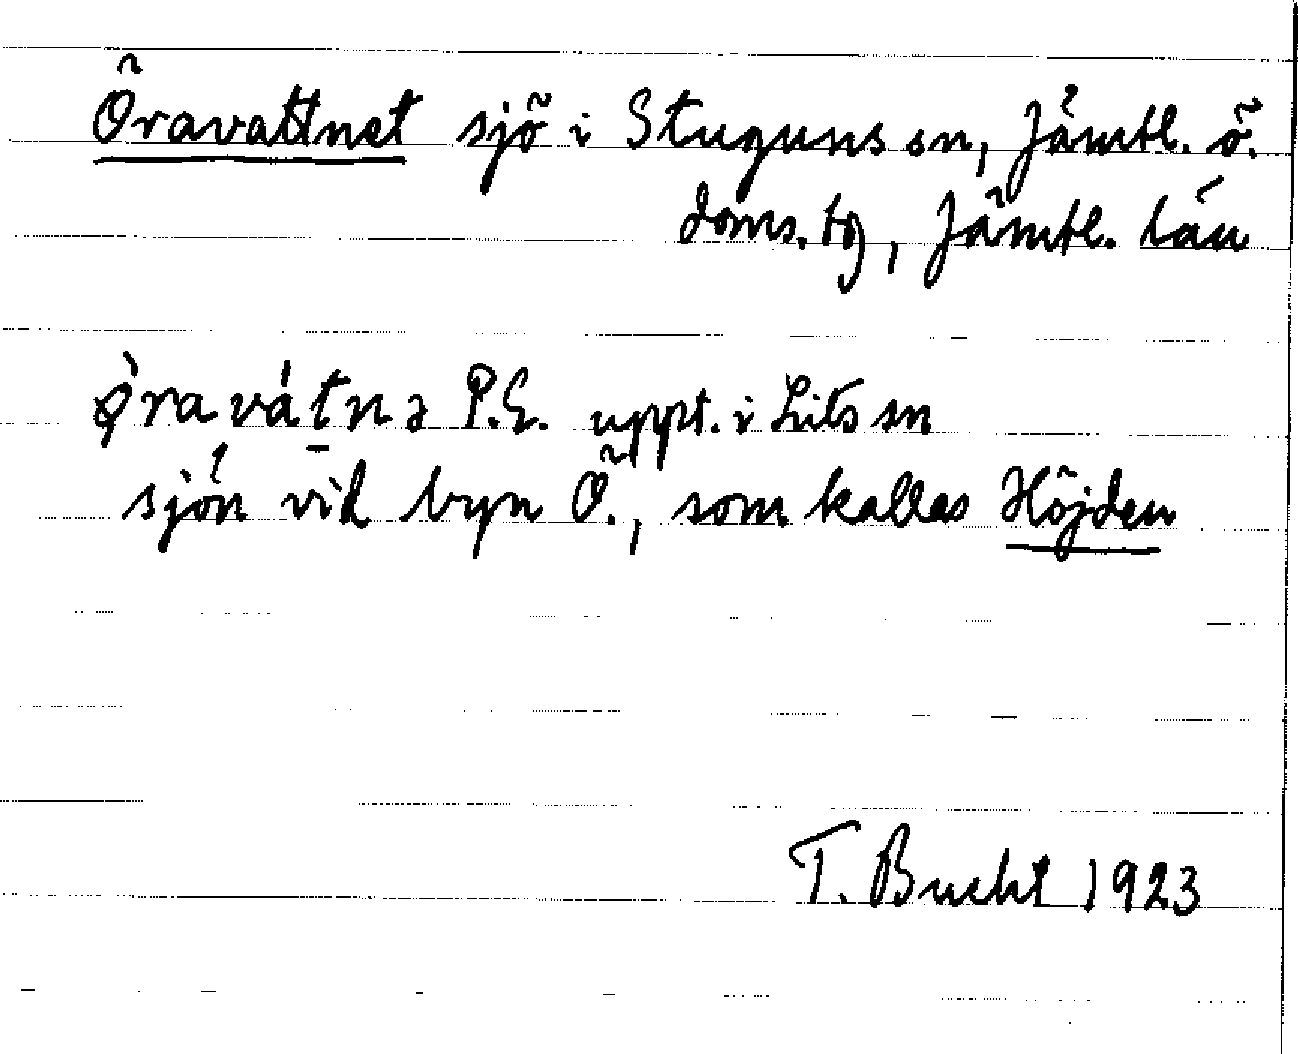 Öravattnet sjö i Stuguns sn, Jämtl. ö.
doms. tg, Jämtl. län
ø̀ravát̠nə P.E. uppt. i Lits sn
sjön vid byn Ö., som kallas Höjden
T. Bucht 1923